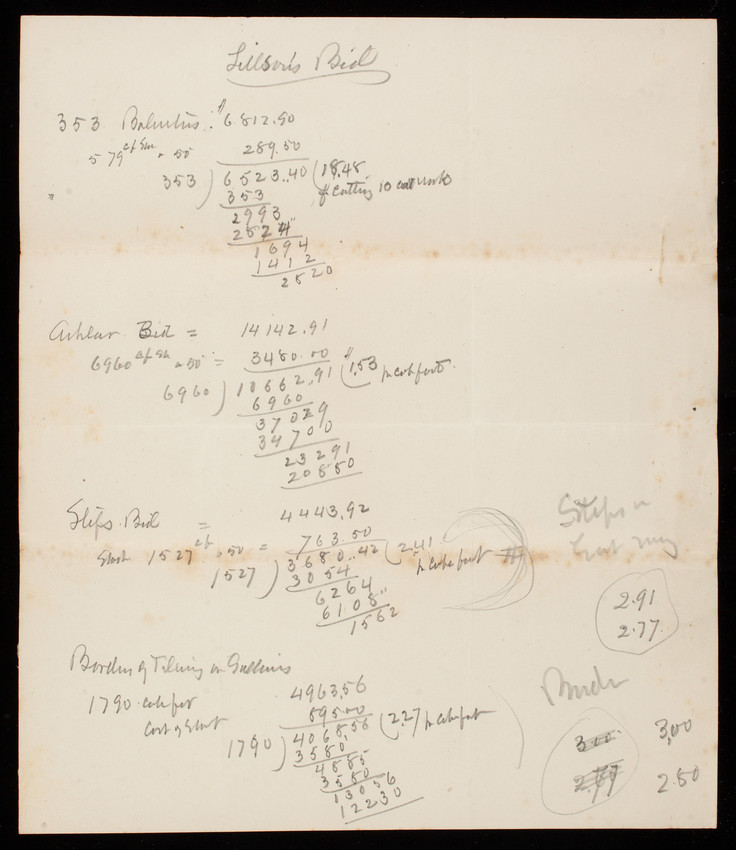 Sillson's Bid
353 Balusters : $ 6812.90
579 cf Stn @ 50 289.50
353 ) 6523.40 ( 18.48
353 $ cutting
2993
2524
1694
1412
2820
Ashlar Bid = 14142.91
6960 cf Stn @ 50 = 3480.00
6960 ) 10662.91 ( $1,53 pr cub foot.
6960
37029
34700
23291
20880
Steps Bid = 4443,92
Stock 1527 cf @ 50 = 763.50
1527 ) 3680..42 ( 2.41 pr cube foot
3054
6264
6108
1562
Steps
2.91
2.77.
Border of Tileing in Galleries
1790 cub feet 4963,56
Cost of Stock 895.00
1790 ) 4068,56 ( 2.27 pr cube foot
3580
4885
3580
13056
12230
300 3,00
2.77 2.80